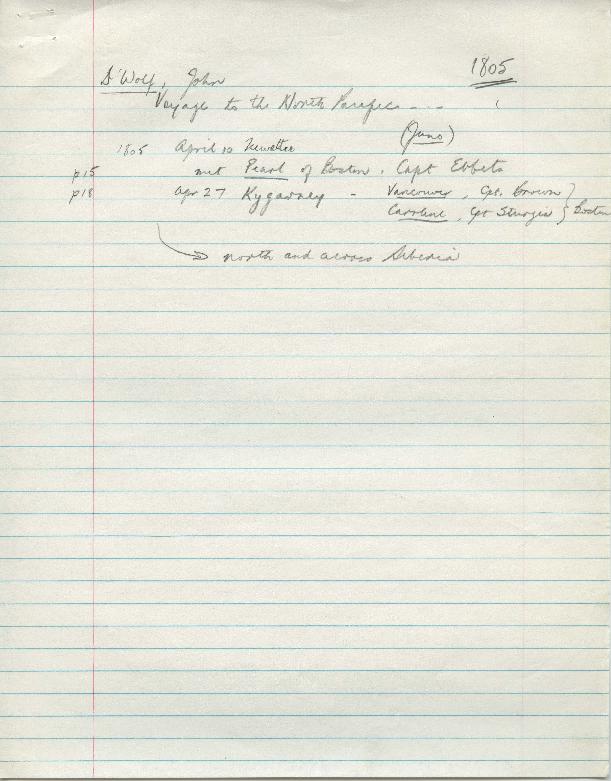 1805
D'Wolf, John
Voyage to the North Pacific - - -
(Juno)
1805 April 10 Newettee
p15 met Pearl of Boston, Capt Ebbets
p18 Apr 27 Kygarney - Vancouver, Cpt. Brown } Boston
Caroline, Cpt Sturgis
north and across Siberia